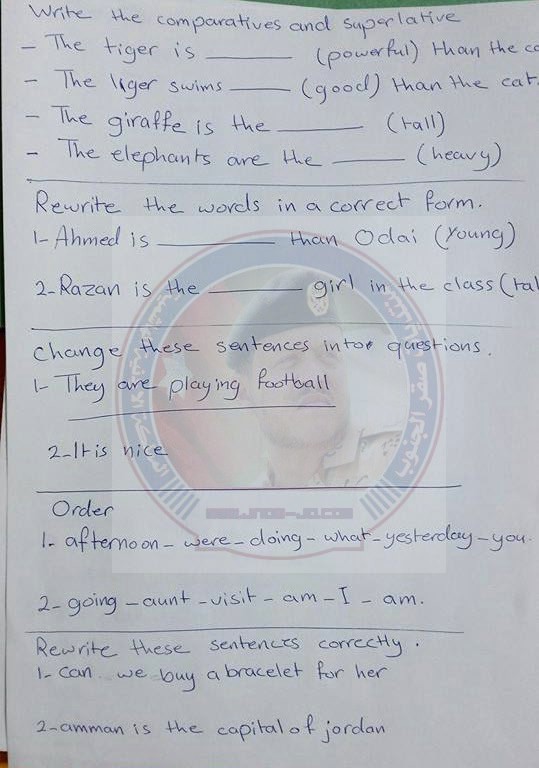 Write the comparatives and superlative
- The tiger is ______ (powerful) than the
- The liger swims ____ (good) than the cat.
- The giraffe is the ______ (tall)
- The elephants are the _____ (heavy)
Rewrite the words in a correct form.
1- Ahmed is ________ than Odai (Young)
2- Razan is the ______ girl in the class (tal
change these sentences into questions.
1- They are playing football
2- It is nice
Order
1- afternoon - were - doing - what - yesterday - you.
2- going - aunt - visit - am - I - am.
Rewrite these sentences correctly.
1- can we buy a bracelet for her
2- amman is the capital of jordan
صقر الجنوب